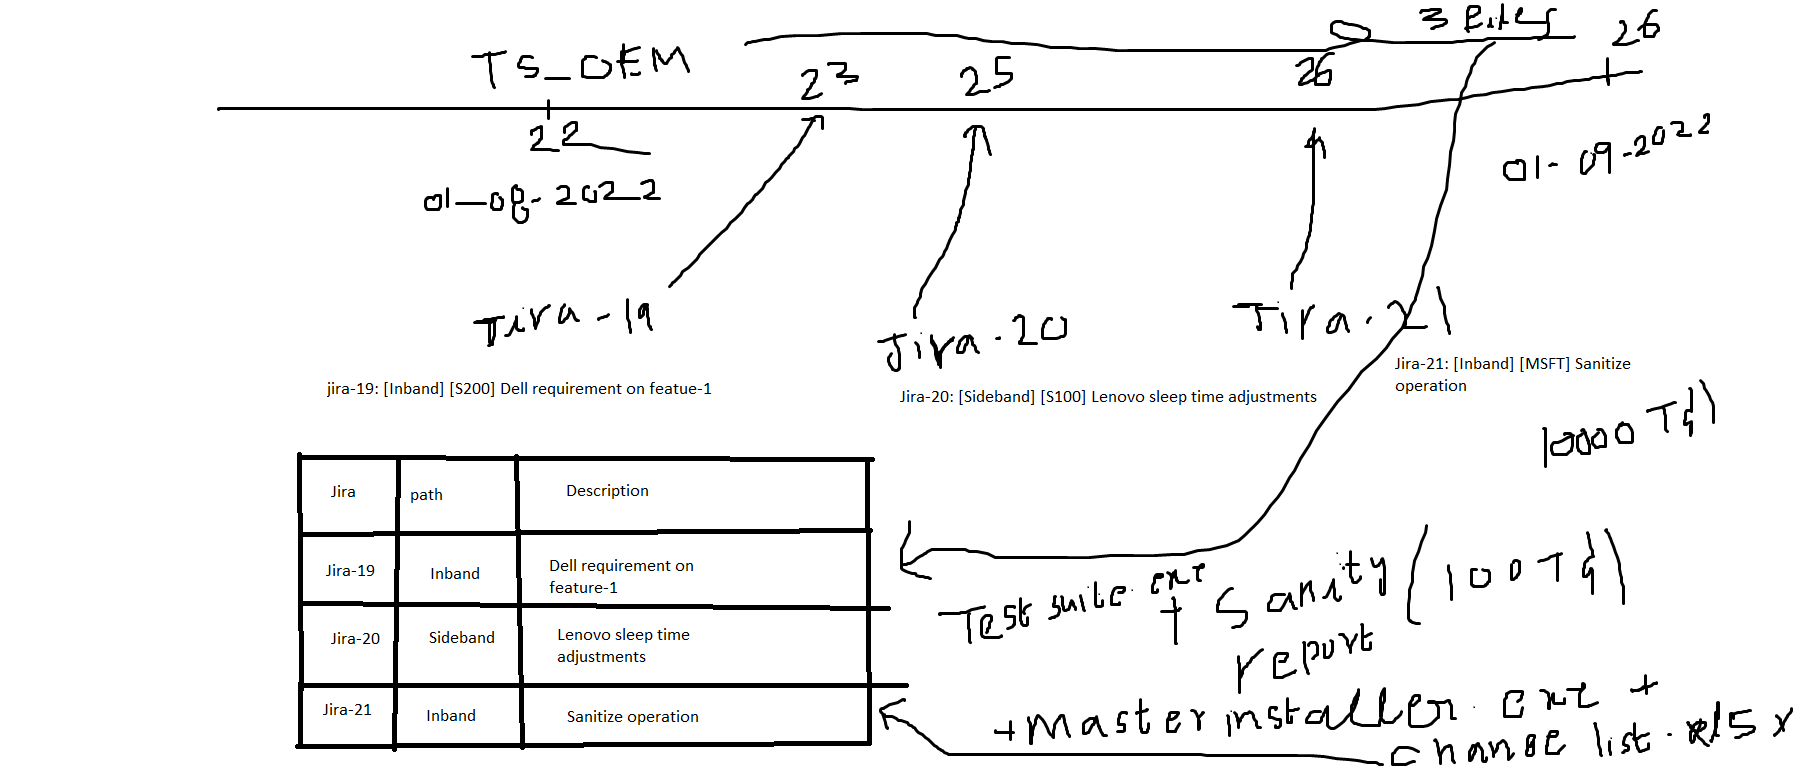 3 Files
26
TS_OEM
23
25
26
22
01-08-2022
01-09-2022
Jira-19
Jira-20
Jira-21
jira-19: [Inband] [S200] Dell requirement on featue-1
Jira-20: [Sideband] [S100] Lenovo sleep time adjustments
Jira-21: [Inband] [MSFT] Sanitize
operation
Jira path Description
Jira-19 Inband Dell requirement on
feature-1
Jira-20 Sideband Lenovo sleep time
adjustments
Jira-21 Inband Sanitize operation
10000
Test suite.exe + Sanity (100
report
+ master installer.exe +
change list.xlsx